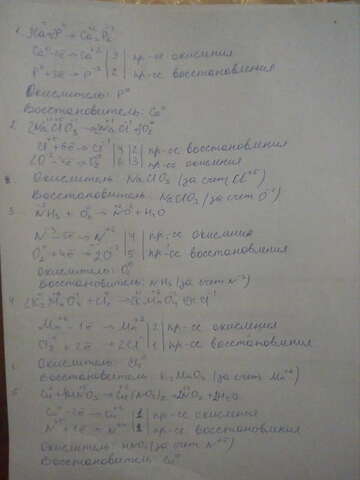 1. 3Ca⁰ + 2P⁰ → Ca₃⁺²P₂⁻³
Ca⁰ - 2ē → Ca⁺² | 3 | пр-се окисления
P⁰ + 3ē → P⁻³ | 2 | пр-се восстановления
Окислитель: P⁰
Восстановитель: Ca⁰
2. 2NaClO₃ → 2NaCl + 3O₂⁰
Cl⁺⁵ + 6ē → Cl⁻¹ | 4 | 2 | пр-се восстановления
2O⁻² - 4ē → O₂⁰ | 6 | 3 | пр-се окисления
Окислитель: NaClO₃ (за счет Cl⁺⁵)
Восстановитель: NaClO₃ (за счет O⁻²)
3. NH₃ + O₂⁰ → NO + H₂O
N⁻³ - 5ē → N⁺² | 4 | пр-се окисления
O₂⁰ + 4ē → 2O⁻² | 5 | пр-се восстановления
Окислитель: O₂⁰
Восстановитель: NH₃ (за счет N⁻³)
4. 2K₂MnO₄ + Cl₂⁰ → 2KMnO₄ + 2KCl
Mn⁺⁶ - 1ē → Mn⁺⁷ | 2 | пр-се окисления
Cl₂⁰ + 2ē → 2Cl⁻ | 1 | пр-се восстановления
Окислитель: Cl₂⁰
Восстановитель: K₂MnO₄ (за счет Mn⁺⁶)
5. Cu + 4HNO₃ → Cu(NO₃)₂ + 2NO₂ + 2H₂O
Cu⁰ - 2ē → Cu⁺² | 1 | пр-се окисления
N⁺⁵ + 1ē → N⁺⁴ | 2 | пр-се восстановления
Окислитель: HNO₃ (за счет N⁺⁵)
Восстановитель: Cu⁰